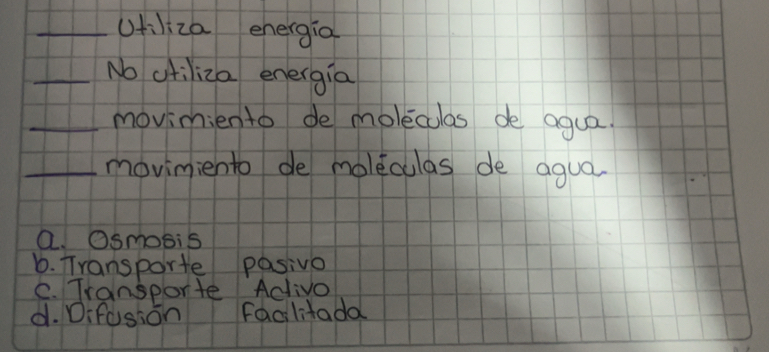 ____ Utiliza energía
____ No utiliza energía
____ movimiento de moléculas de agua.
____ movimiento de moléculas de agua.
a. Osmosis
b. Transporte pasivo
c. Transporte Activo
d. Difusión Facilitada